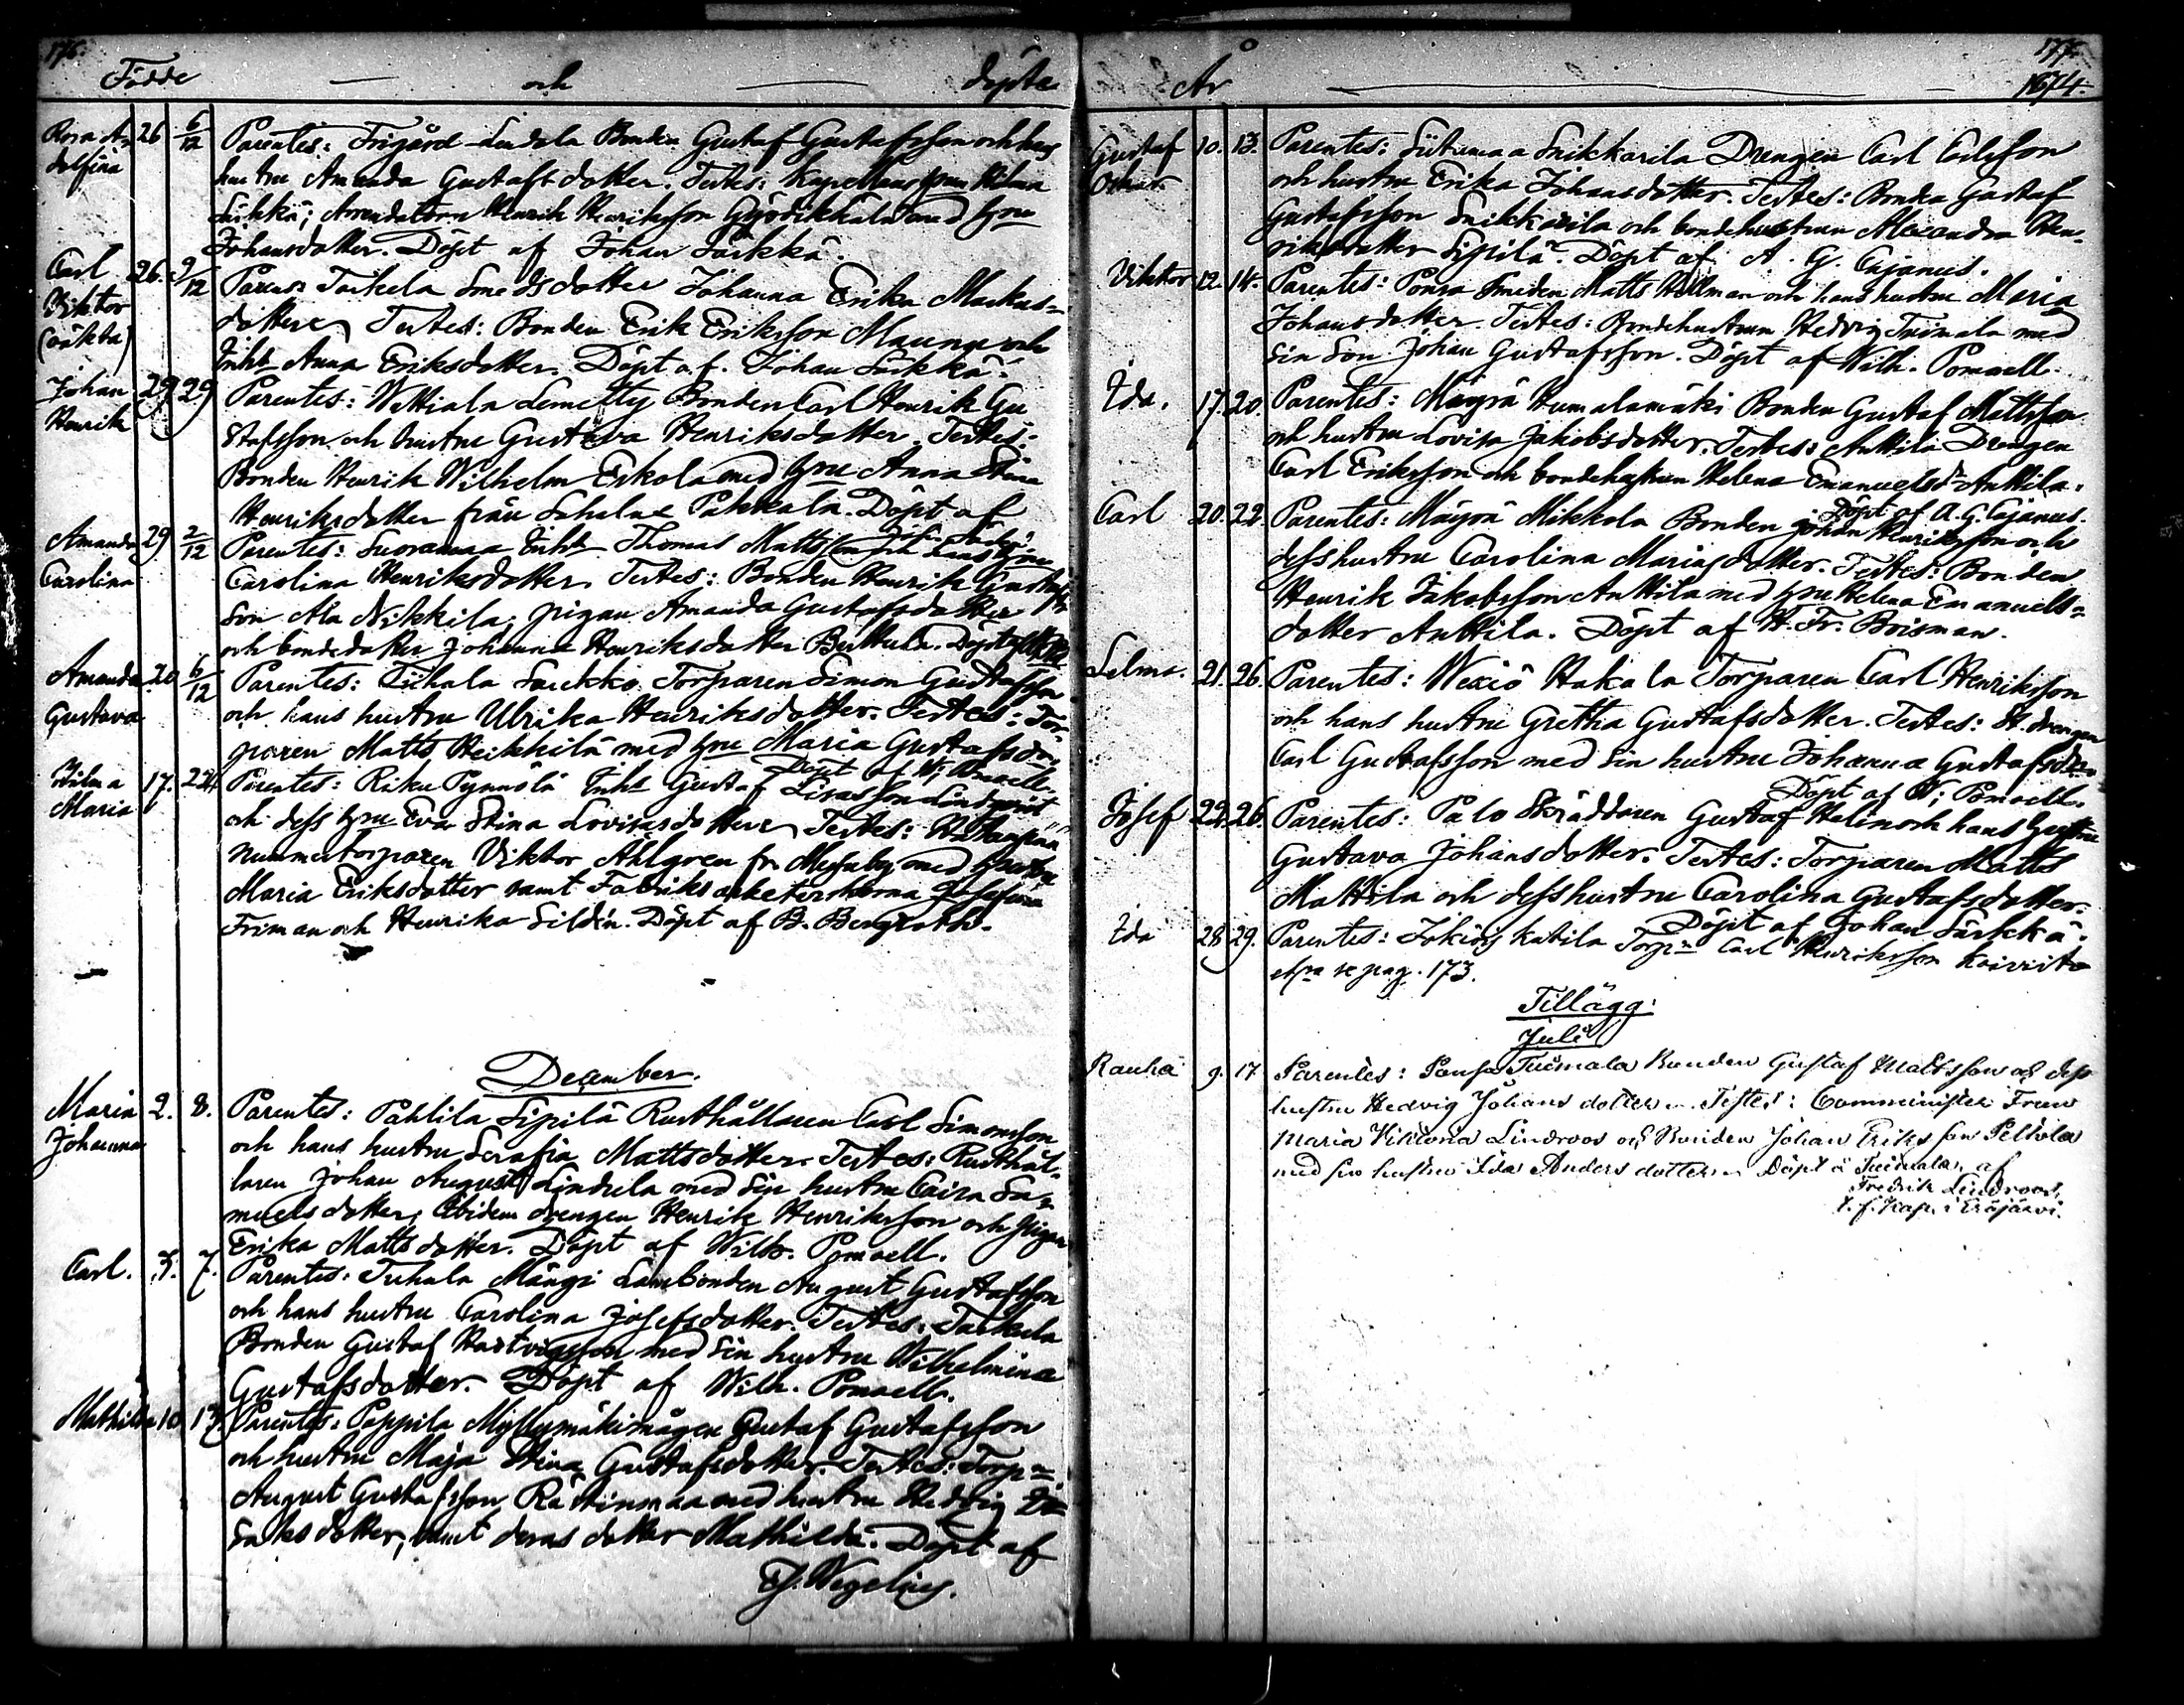 176.
Födde och döpte
Rosa A- 26 6/12 Parentes: Frigård Lindala Bonden Gustaf Gustafsson och hans
dolfina hustru Amanda Gustafsdotter. Testes: Kapellans frun Hilma
Särkkä; Arrendatorn Henrik Henriksson med hru
Johansdotter. Döpt af Johan Särkkä.
Carl 26. 9/12 Parens: Tarkela Smedsdotter Johanna Erika Markus-
Viktor dotter. Testes: Bonden Erik Eriksson Maunu och
(oäkta) Inhs Anna Eriksdotter. Döpt af. Johan Särkkä.
Johan 29 29 Parentes: Wettiala Lemetty Bonden Carl Henrik Gu
Henrik stafsson och hustru Gustava Henriksdotter. Testes:
Bonden Henrik Wilhelm Eskola med hru Anna Stina
Henriksdotter från Sahalax Pakkala. Döpt af
Amanda 29 2/12 Parentes: Suoramaa Inhs Thomas Mattsson och hans hru
Carolina Carolina Henriksdotter. Testes: Bonden Henrik Gustafs
son Ala Nikkilä, pigan Amanda Gustafsdotter
och bondedotter Johanna Henriksdotter Berttula. Döpt af
Amanda 20 6/12 Parentes: Tiihala Saukko Torparen Simon Gustafsson
Gustava och hans hustru Ulrika Henriksdotter. Testes: Tor-
paren Matts Heikkilä med hru Maria Gustafsdr.
Döpt af W. Pomoell.
Hilma 17. 24. Parentes: Riku Pynnölä Inhs Gustaf Lisasson Lindqvist
Maria och dess hru Eva Stina Lovisasdotter. Testes:
Nummertorparen Viktor Ahlgren fr. Messuby med hustru
Maria Eriksdotter samt Fabriksarbeterskorna Josefina
Friman och Henrika Sildén. Döpt af B. Bergroth.
December.
Maria 2. 8. Parentes: Pahlila Sipilä Rusthållaren Carl Simonsson
Johanna och hans hustru Serafia Mattsdotter. Testes: Rusthål-
laren Johan August Lindula med sin hustru Caisa Sa-
muelsdotter, Ibidem drengen Henrik Henriksson och pigan
Erika Mattsdotter. Döpt af Wilh. Pomoell.
Carl. 3. 7. Parentes: Tuhala Mängi Landbonden August Gustafsson
och hans hustru Carolina Josefsdotter. Testes: Tarkela
Bonden Gustaf Hartvigsson med sin hustru Wilhelmina
Gustafsdotter. Döpt af Wilh. Pomoell.
Mathilda 10 13 Parentes: Pappila Myllymäki mågen Gustaf Gustafsson
och hustru Maja Stina Gustafsdotter. Testes: Torpn
August Gustafsson Rästinmaa med hustru Hedvig I-
saksdotter, samt deras dotter Mathilda. Döpt af
Wegelius.
177.
År 1874.
Gustaf 10. 13. Parentes: Siitamaa Snikkarila Drengen Carl Carlsson
Oskar och hustru Erika Johansdotter. Testes: Bonden Gustaf
Gustafsson Snikkarila och bondehustrun Alexandra Hen-
riksdotter Sipilä. Döpt af A. G. Cajanus.
Viktor 12. 14. Parentes: Ponsa Smeden Matts Hellman och hans hustru Maria
Johansdotter. Testes: Bondehustrun Hedvig Tuimala med
Sin Son Johan Gustafsson. Döpt af Wilh. Pomoell.
Ida. 17. 20. Parentes: Mäyrä Humalamäki Bonden Gustaf Mattsson
och hustru Lovisa Jakobsdotter. Testes: Anttila Drengen
Carl Eriksson och bondehustrun Helena Emanuelsdr Anttila.
Döpt af A. G. Cajanus.
Carl 20. 22. Parentes: Mäyrä Mikkola Bonden Johan Henriksson och
dess hustru Carolina Mariasdotter. Testes: Bonden
Henrik Jakobsson Anttila med hru Helena Emanuels-
dotter Anttila. Döpt af H. Fr. Boisman.
Selma. 21. 26. Parentes: Wexiö Hakala Torparen Carl Henriksson
och hans hustru Gretha Gustafsdotter. Testes: St. drengen
Carl Gustafsson med sin hustru Johanna Gustafsdr.
Döpt af W. Pomoell.
Josef 22. 26. Parentes: Palo Skräddaren Gustaf Helin och hans hustru
Gustava Johansdotter. Testes: Torparen Matts
Mattila och dess hustru Carolina Gustafsdotter.
Döpt af Johan Särkkä.
Ida 28 29. Parentes: Jokioiss Katila Torpn Carl Henriksson Koivisto
etc se pag. 173.
Tillägg:
Juli
Rauha 9. 17 Parentes: Ponsa Tuimala Bonden Gustaf Mattsson och dess
hustru Hedvig Johansdotter. Testes: Comminister Frun
Maria Viktoria Lindroos och Bonden Johan Eriksson Peltola
med sin hustru Ida Andersdotter. Döpt å Tuimala, af
Fredrik Lindroos,
v. f. Kap. i Eräjärvi.